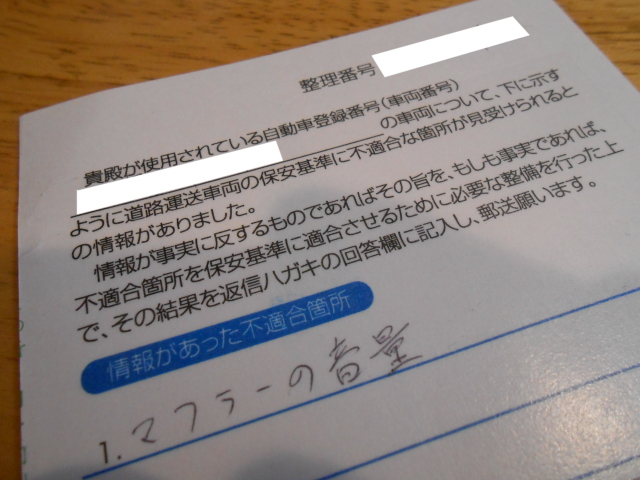 整理番号
貴殿が使用されている自動車登録番号(車両番号)
の車両について、下に示す
ように道路運送車両の保安基準に不適合な箇所が見受けられると
の情報がありました。
情報が事実に反するものであればその旨を、もしも事実であれば、
不適合箇所を保安基準に適合させるために必要な整備を行った上
で、その結果を返信ハガキの回答欄に記入し、郵送願います。
情報があった不適合箇所
1.マフラーの音量